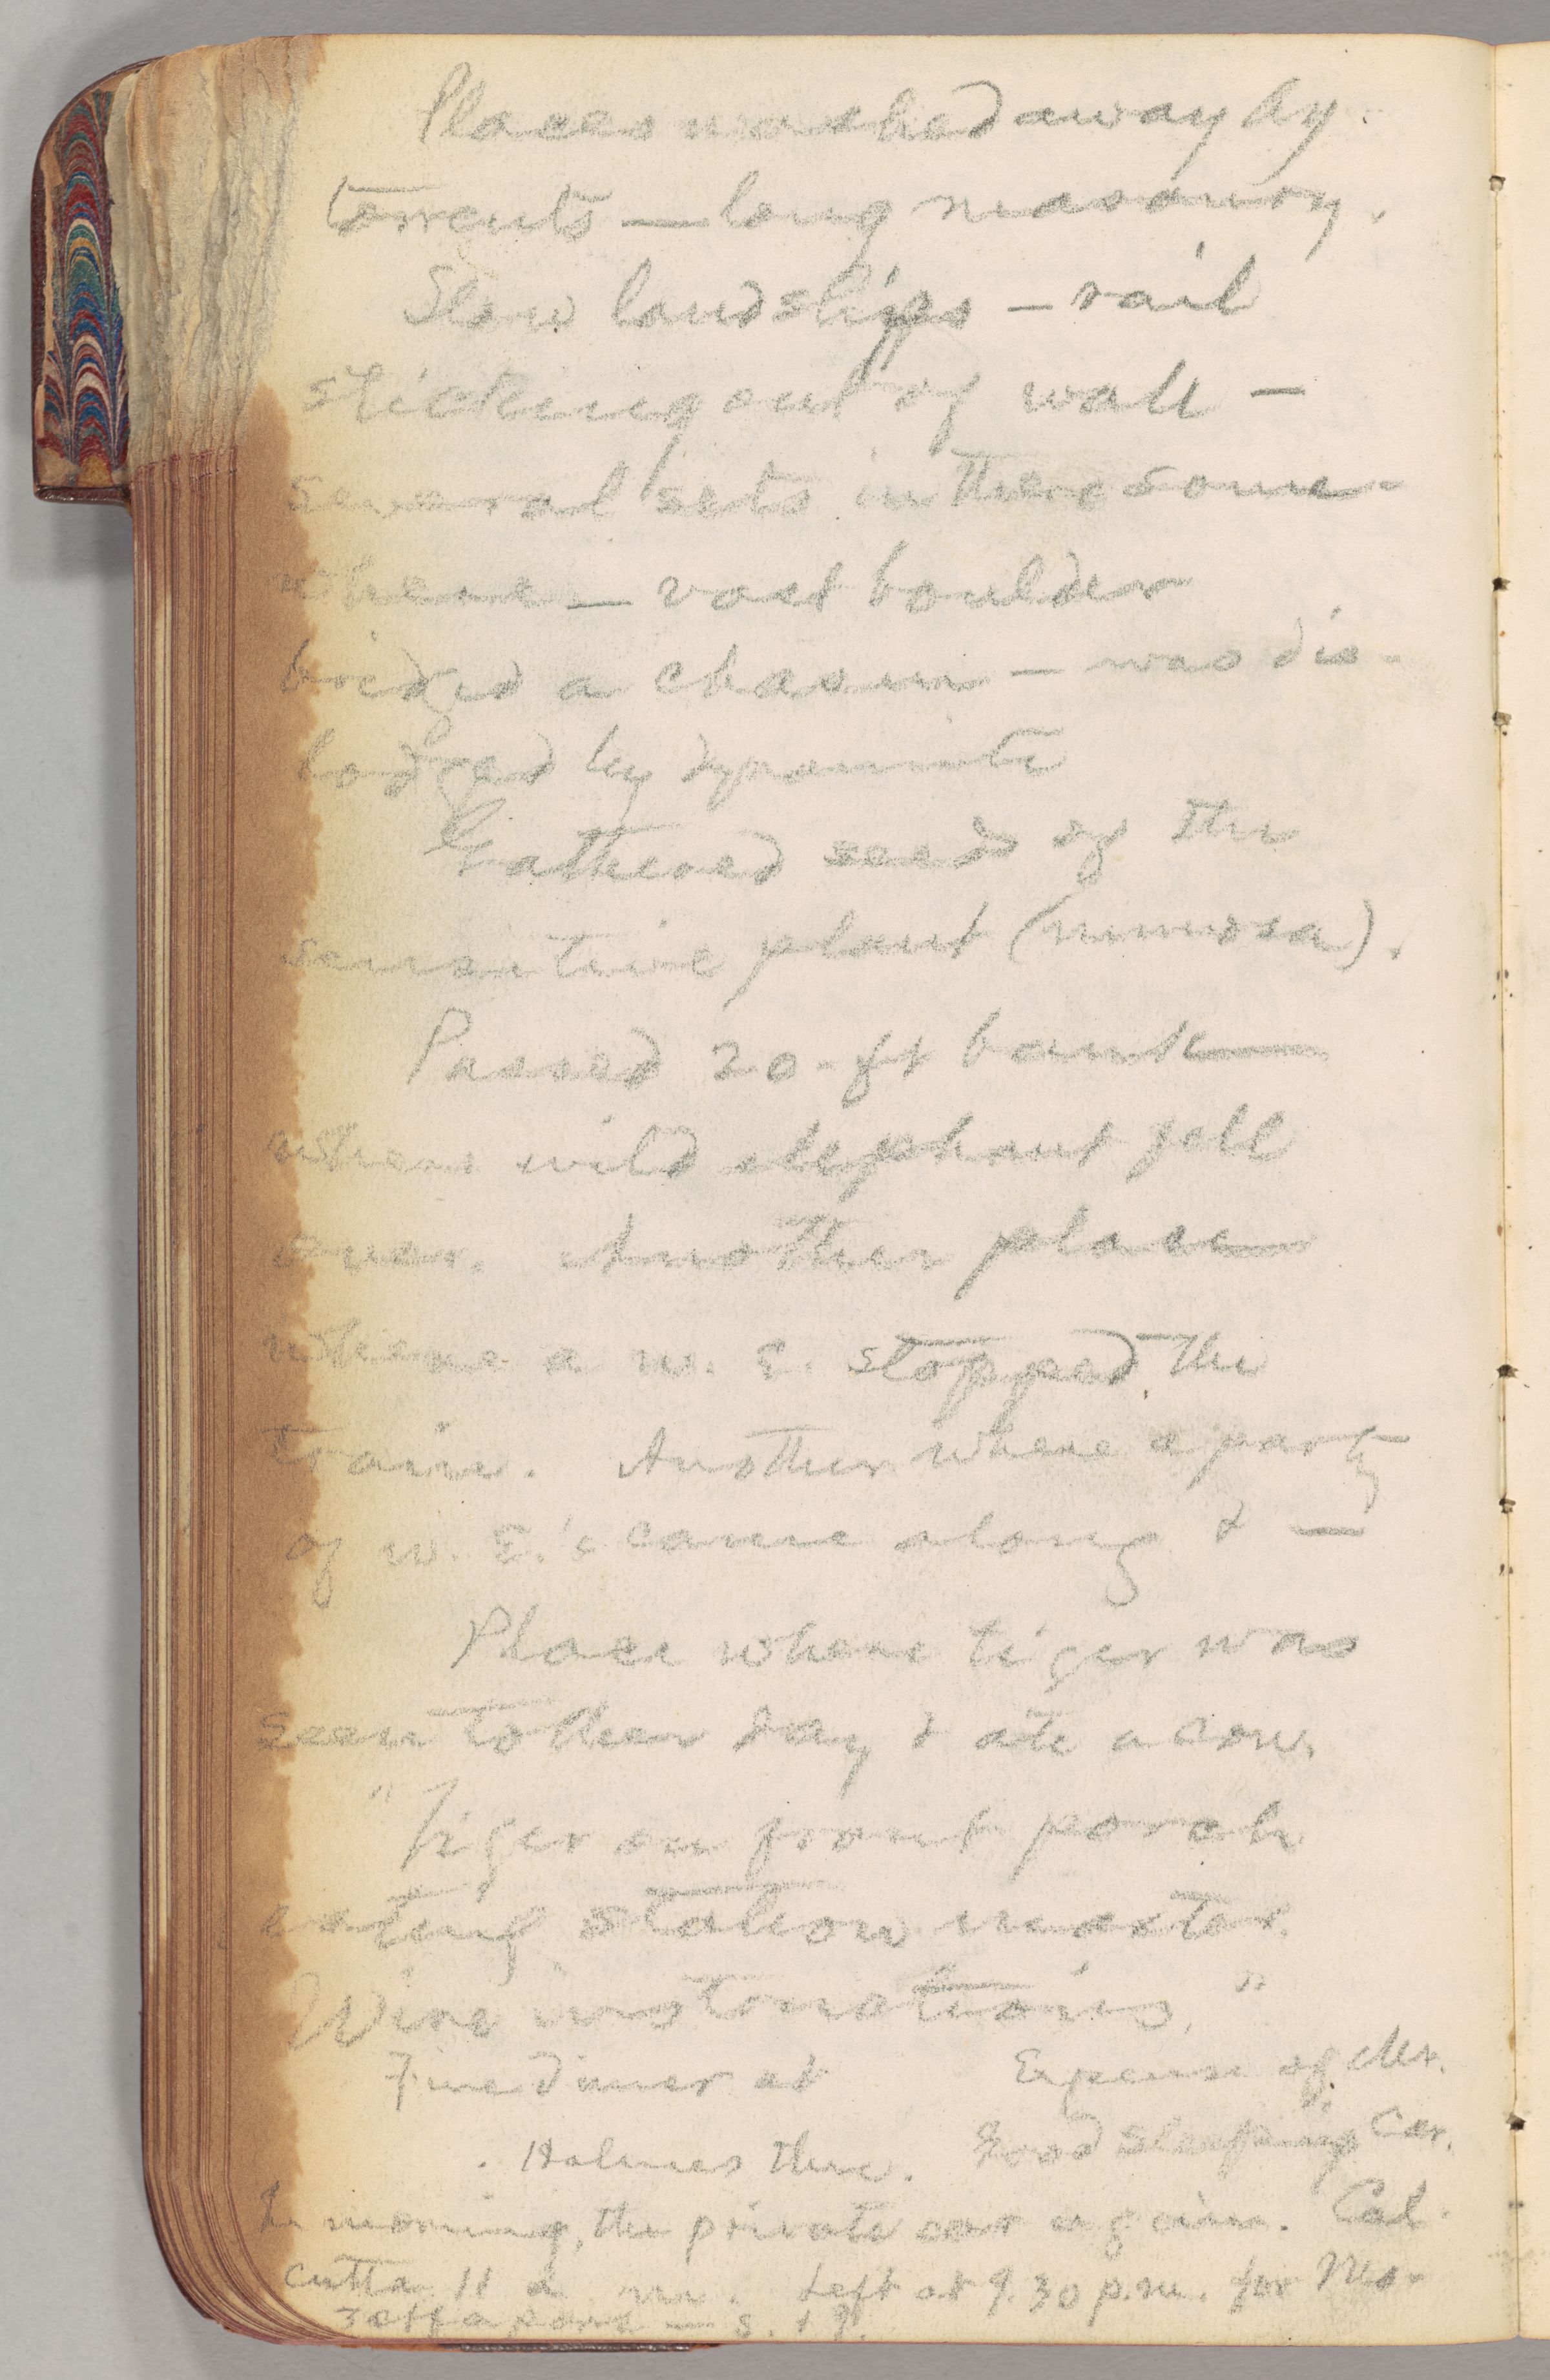 Places washed away by
torrents — long masonry.
Slow landslips — rail
sticking out of wall —
several sets in there some-
where — vast boulder
bridged a chasm — was dis-
lodged by dynamite
Gathered seed of the
sensitive plant (mimosa).
Passed 20-ft bank
where wild elephant fell
over. Another place
where a w. E. stopped the
train. Another where a party
of w. E.'s came along & —
Place where tiger was
seen t'other day & ate a cow.
"Tiger on front porch
eating station master.
Wire instructions."
Fine dinner at Expense of Mr.
. Holmes there. Good sleeping car.
In morning, the private car again. Cal-
cutta 11 a m. Left at 9.30 p.m. for Mo-
zuffapore — S. & I.